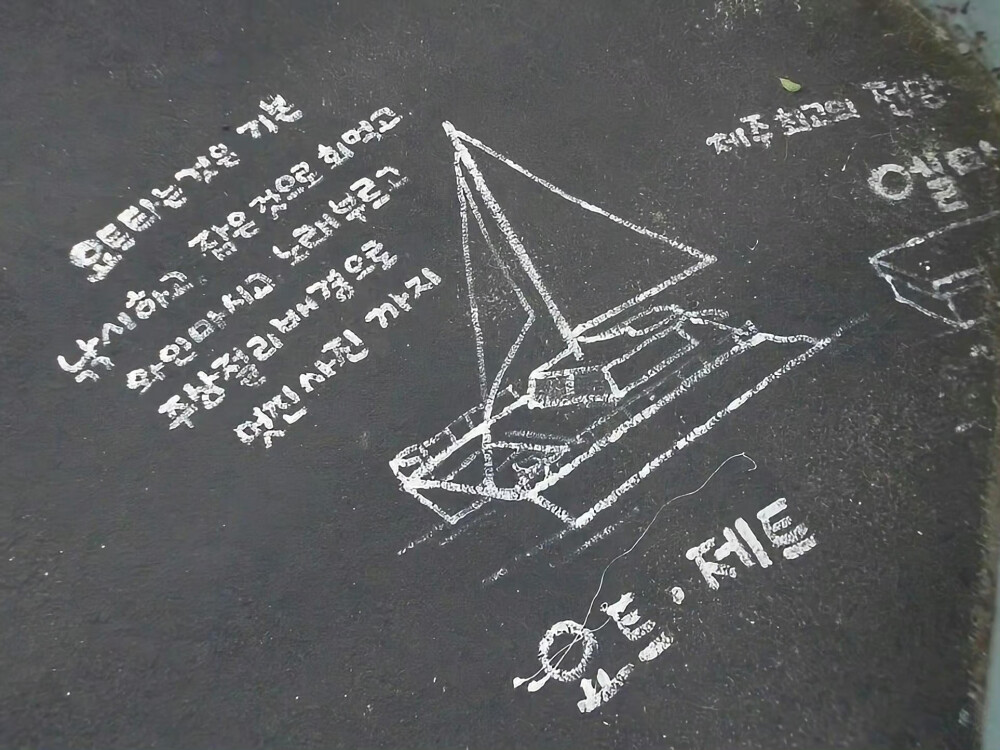 요트타는것은 기본
낚시하고, 잡은 것으로 회먹고
와인마시고 노래부르고
주상절리배경으로
멋찐사진 까지
제주 최고의 전망
요트 · 제트